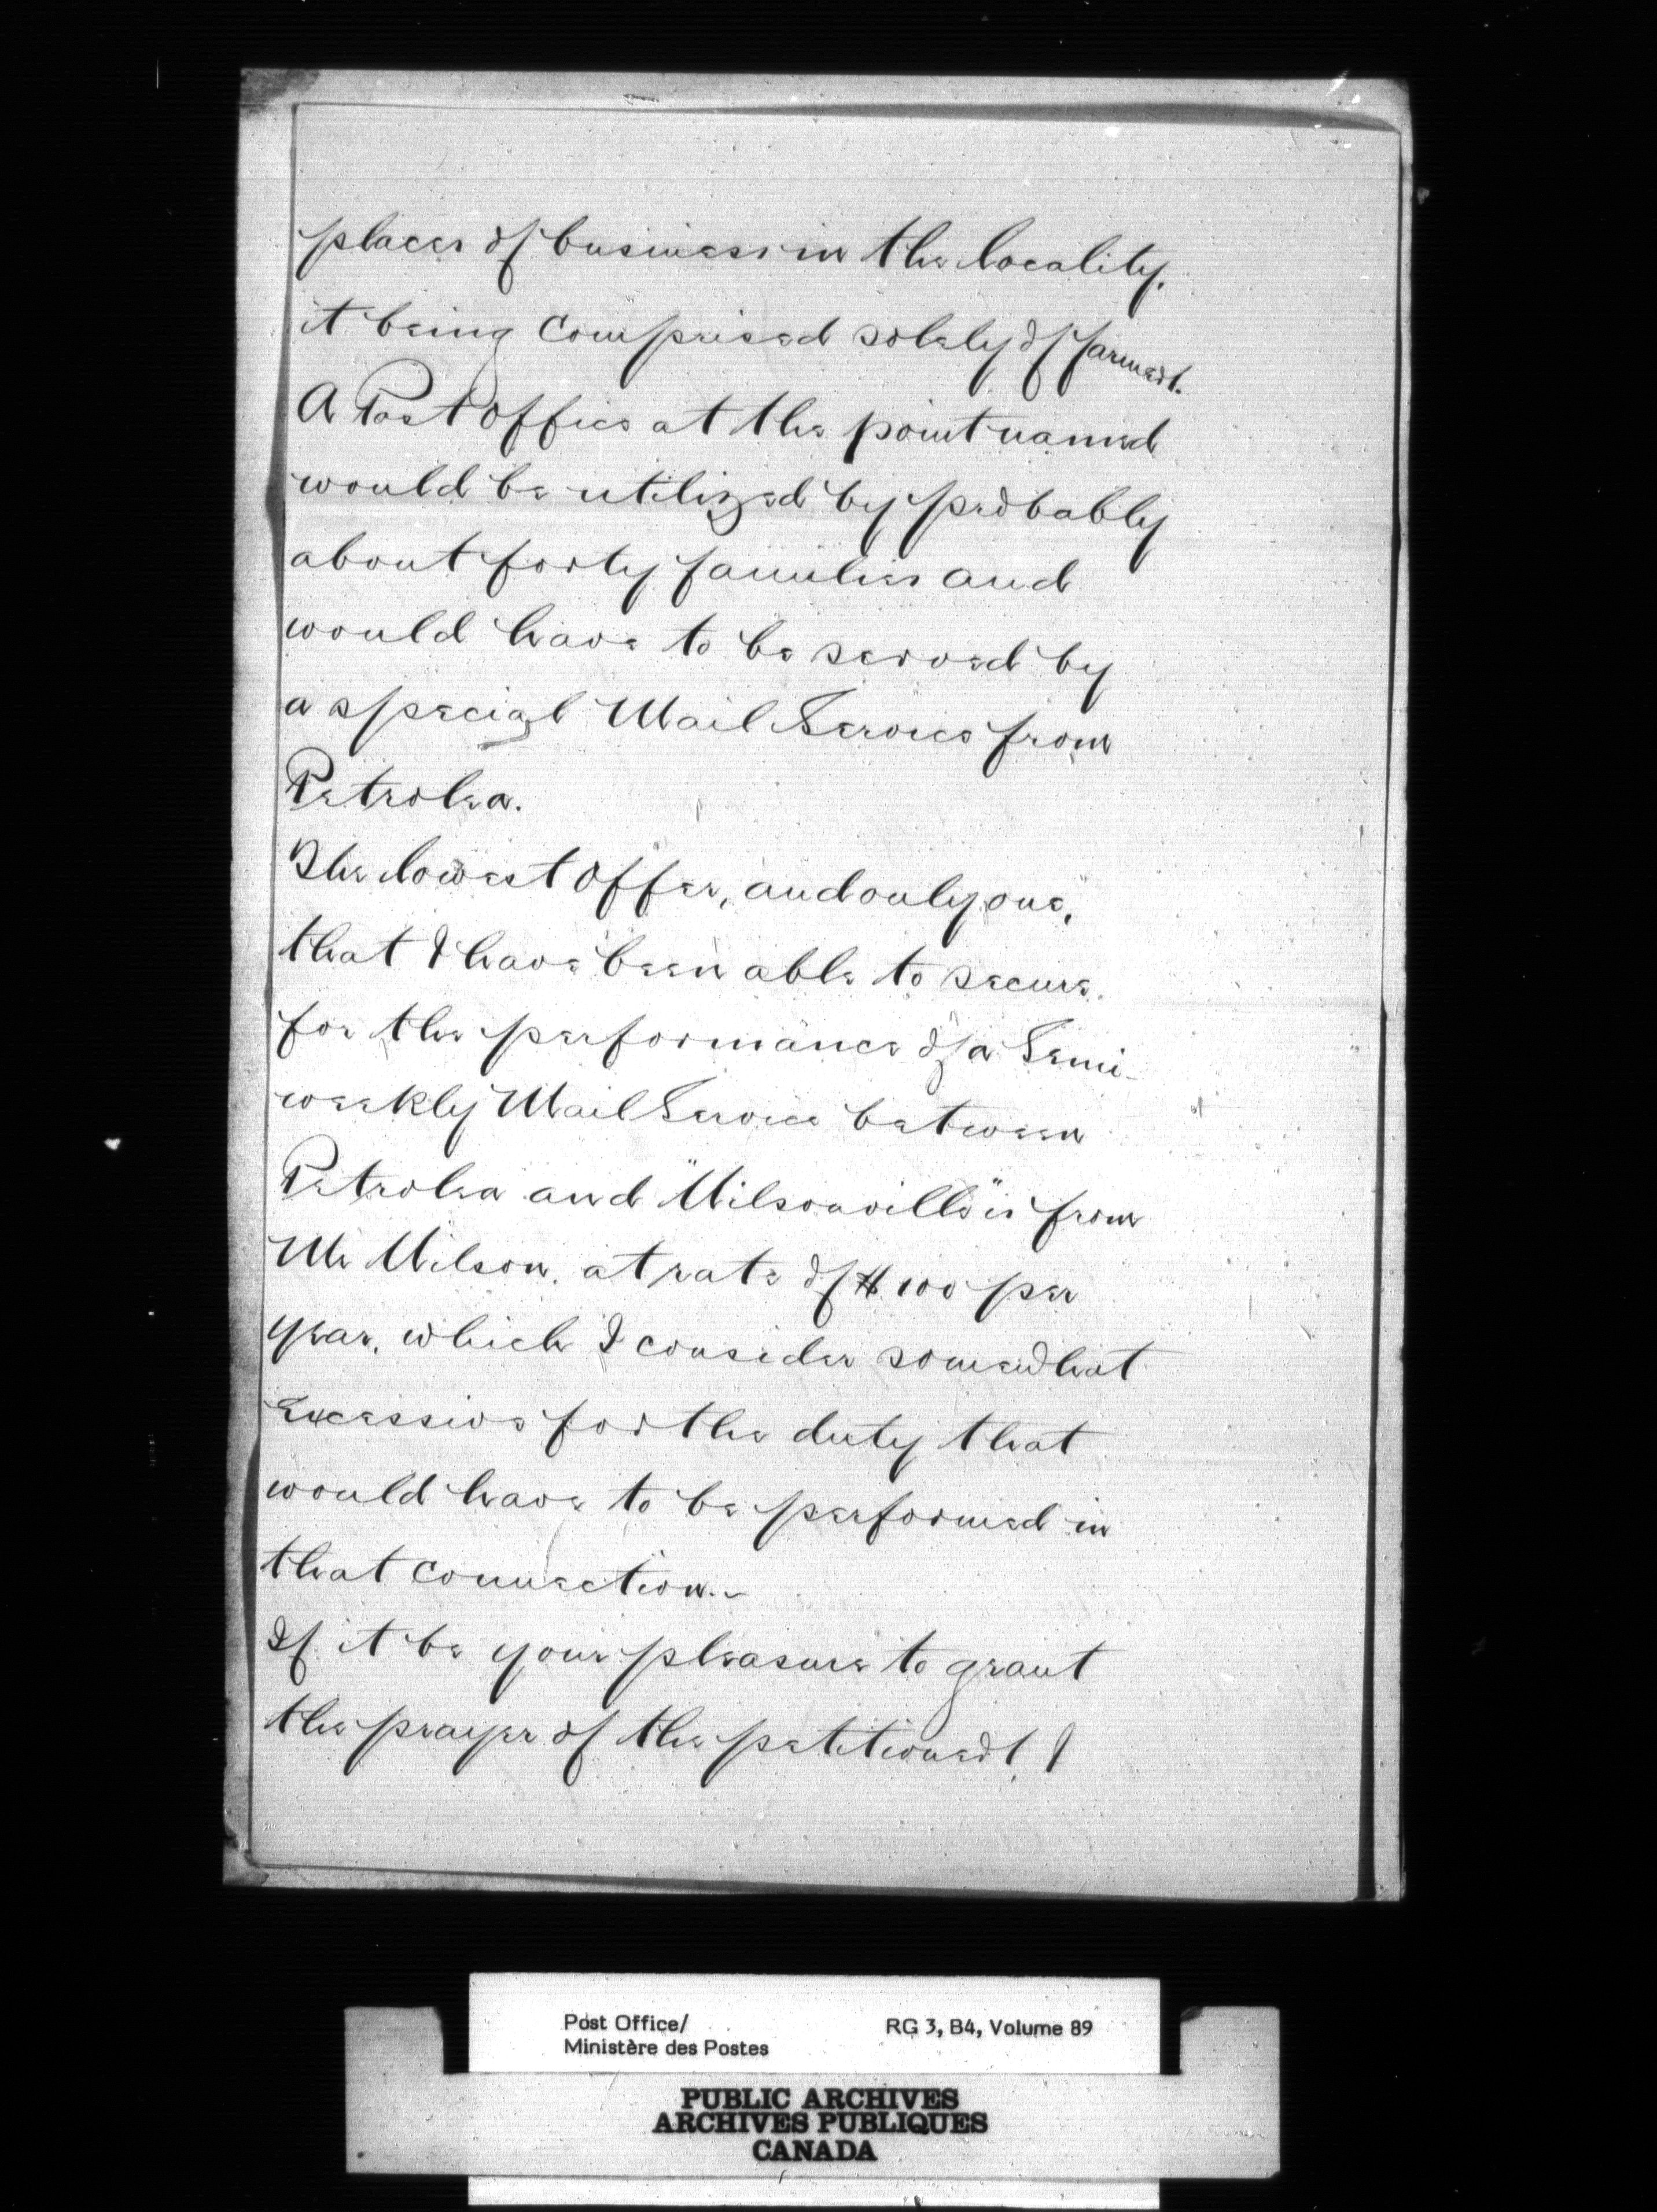 places of business in the locality.
it being Comprised solely of farmers.
A Post Office at the point named
would be utilized by probably
about forty families and
would have to be served by
a special Mail Service from
Petrolea.
The lowest Offer, and only one,
that I have been able to secure
for the performance of a Semi-
weekly Mail Service between
Petrolea and "Wilsonville" is from
Mr Wilson. at rate of $100 per
year, which I consider somewhat
Excessive for the duty that
would have to be performed in
that connection.-
If it be your pleasure to grant
the prayer of the petitioners, I
Post Office/ RG 3, B4, Volume 89
Ministère des Postes
PUBLIC ARCHIVES
ARCHIVES PUBLIQUES
CANADA